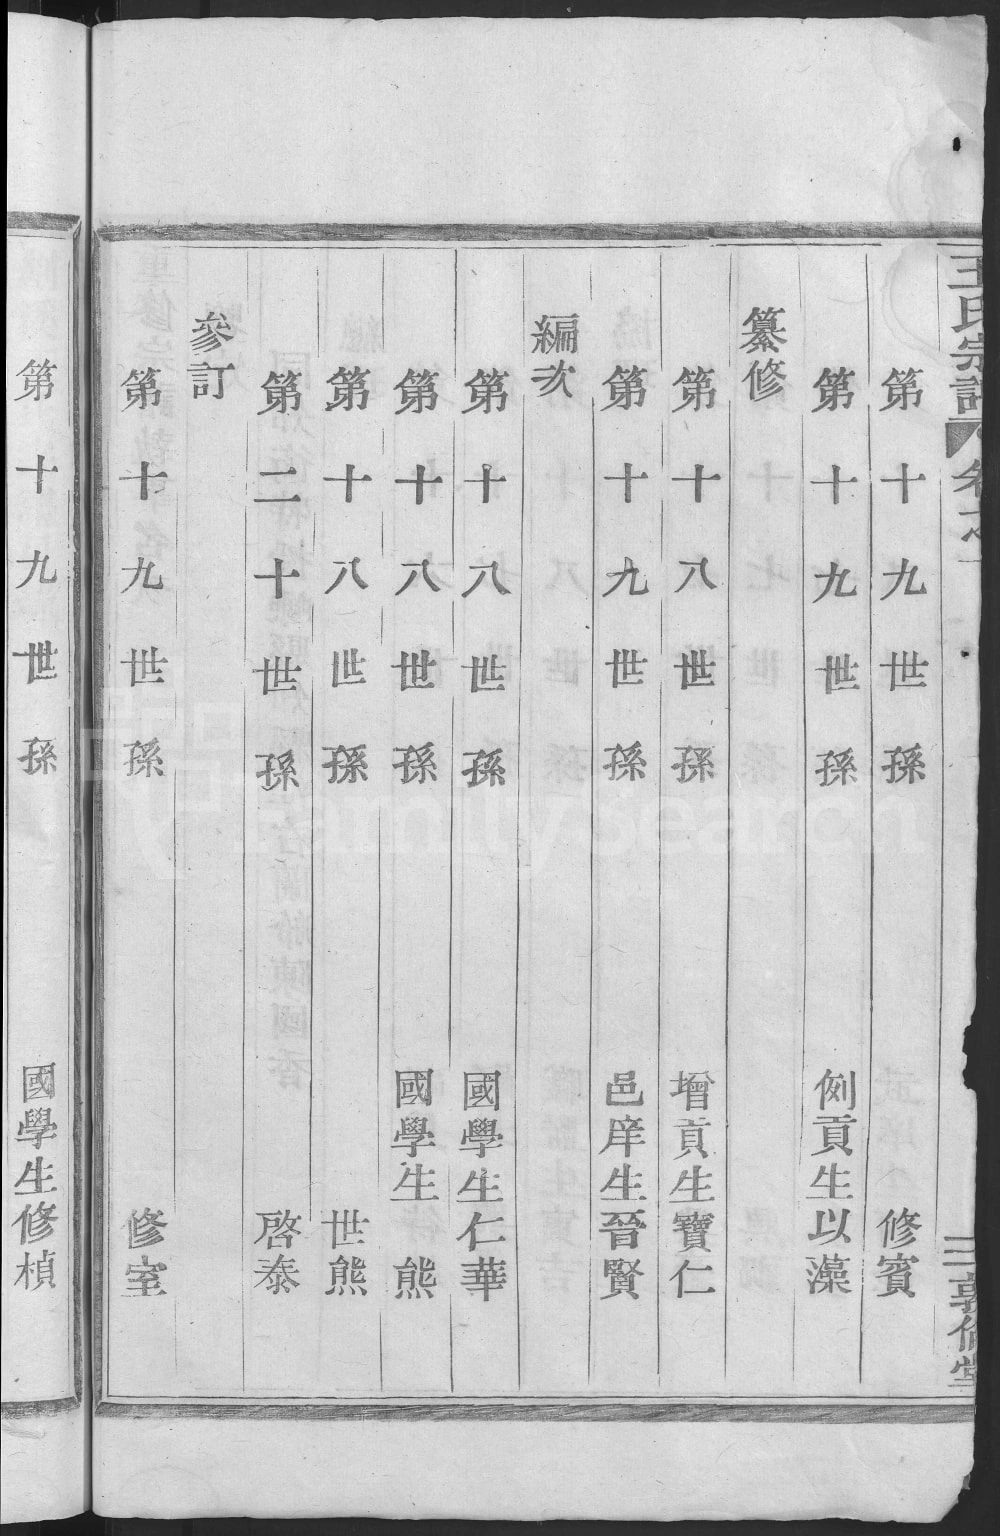 王氏宗譜
卷之一
三
敦倫堂
第十九世孫 修賓
第十九世孫 例貢生以藻
纂修
第十八世孫 增貢生寶仁
第十九世孫 邑庠生晉賢
編次
第十八世孫 國學生仁華
第十八世孫 國學生 熊
第十八世孫 世熊
第二十世孫 啓泰
參訂
第十九世孫 修室
第十九世孫 國學生修楨
familysearch